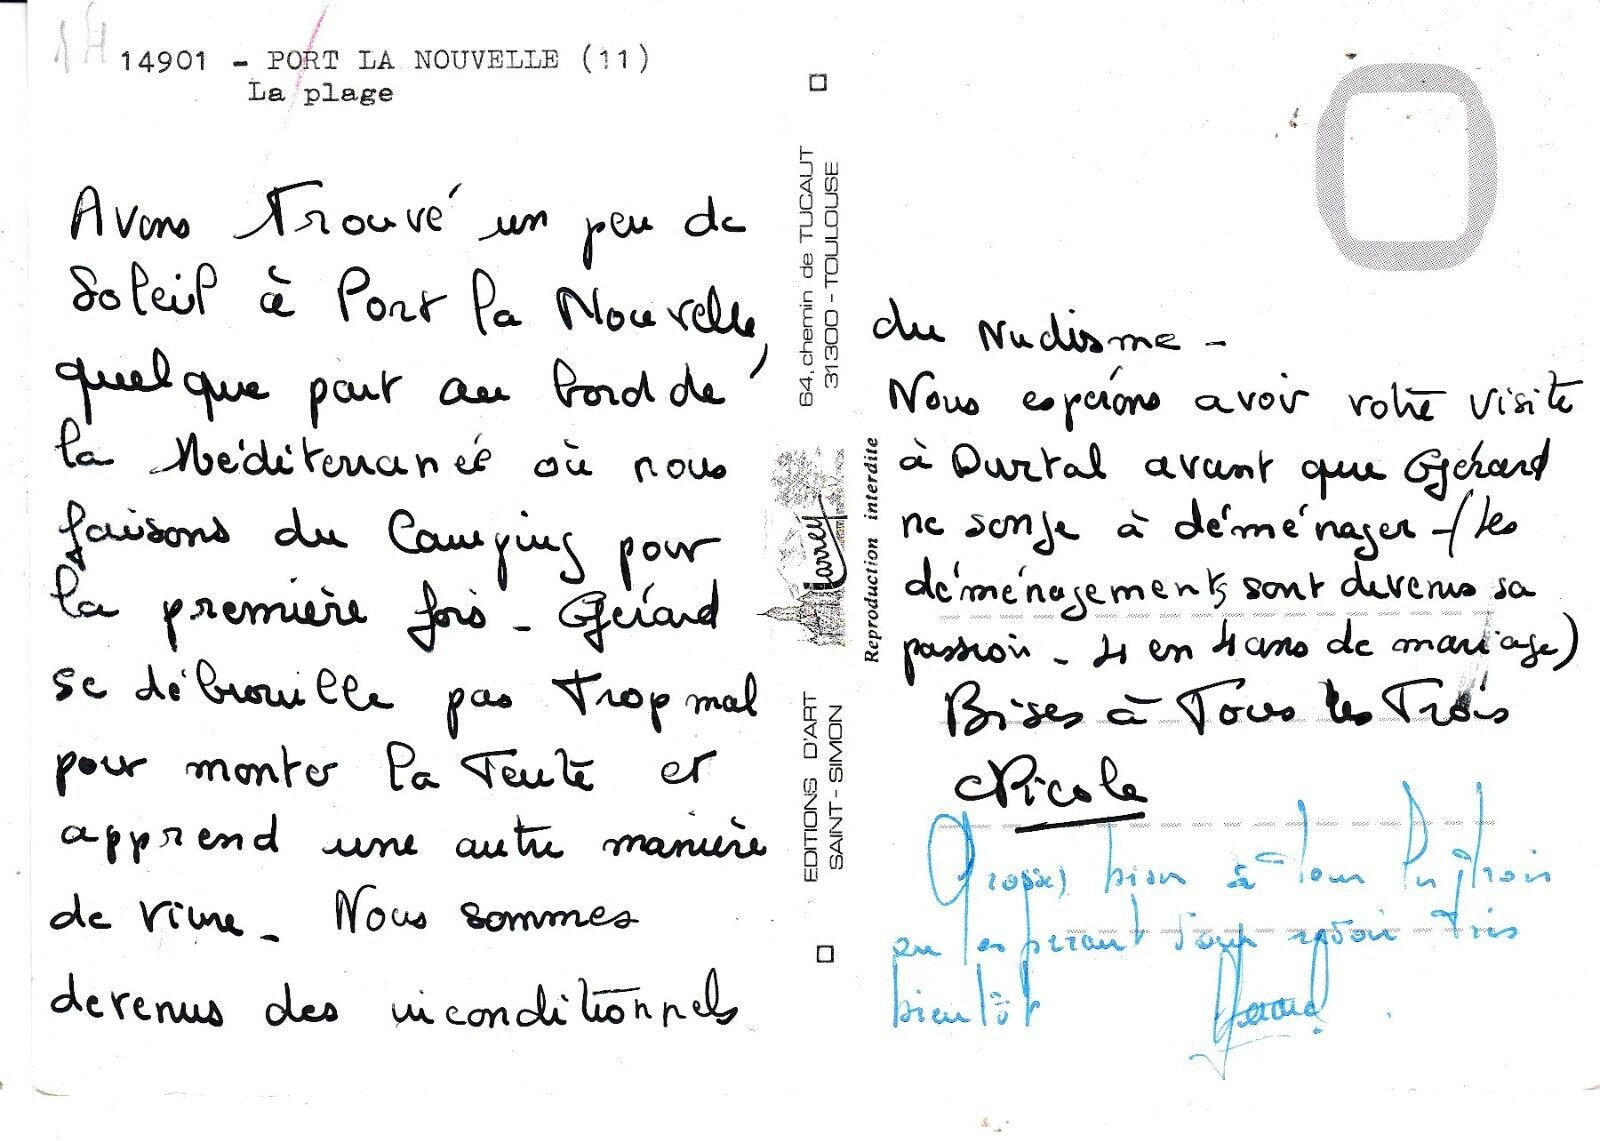 14901 - PORT LA NOUVELLE (11)
La plage
Avons Trouvé un peu de
Soleil à Port la Nouvelle,
quelque part au bord de
la Méditerranée où nous
faisons du Camping pour
la première fois - Gérard
se débrouille pas Trop mal
pour monter la Tente et
apprend une autre manière
de vivre - Nous sommes
devenus des inconditionnels
64, chemin de TUCAUT
31300 - TOULOUSE
Larrey
Reproduction interdite
EDITIONS D'ART
SAINT-SIMON
du Nudisme -
Nous espérons avoir votre visite
à Durtal avant que Gérard
ne songe à déménager - (les
déménagements sont devenus sa
passion - 4 en 4 ans de mariage)
Bises à Tous les Trois
Nicole
Grosses bises à tous les trois
en espérant vous revoir très
bientôt Gérard